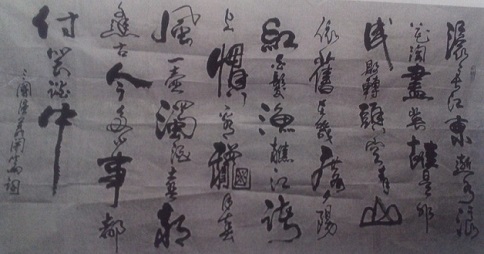 滾滾長江東逝水浪
花淘盡英雄是非
成敗轉頭空青山
依舊在幾度夕陽
紅白髮漁樵江渚
上慣看秋月春
風一壺濁酒喜相
逢古今多少事都
付笑談中
三國演義開篇詞